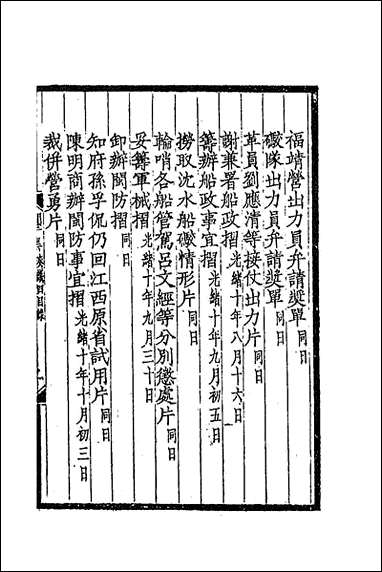 福靖營出力員弁請獎單 同日
礮隊出力員弁請獎單 同日
革員劉應清等接仗出力片 同日
謝兼署船政摺 光緒十年八月十六日
籌辦船政事宜摺 光緒十年九月初五日
撈取沈水船礮情形片 同日
輪哨各船管駕呂文經等分別懲處片 同日
妥籌軍械摺 光緒十年九月三十日
卸辦閩防摺 同日
知府孫孚侃仍回江西原省試用片 同日
陳明商辦閩防事宜摺 光緒十年十月初三日
裁併營勇片 同日